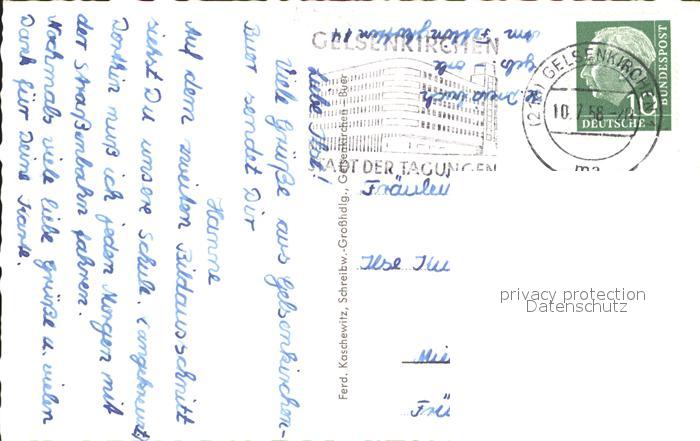 Liebe Ilse!
Viele Grüße aus Gelsenkirchen-
Buer sendet Dir
Hanne
Auf dem zweiten Bildausschnitt
siehst Du unsere Schule. (angekreuzt
Dorthin muß ich jeden Morgen mit
der Straßenbahn fahren.
Nochmals viele liebe Grüße u. vielen
Dank für Deine Karte.
Ferd. Kaschewitz, Schreibw.-Großhdlg., Gelsenkirchen - Buer
GELSENKIRCHEN
STADT DER TAGUNGEN
(21a) GELSENKIRCHEN
10.7.58
ma
10
DEUTSCHE
BUNDESPOST
Fräulein
Ilse
privacy protection
Datenschutz